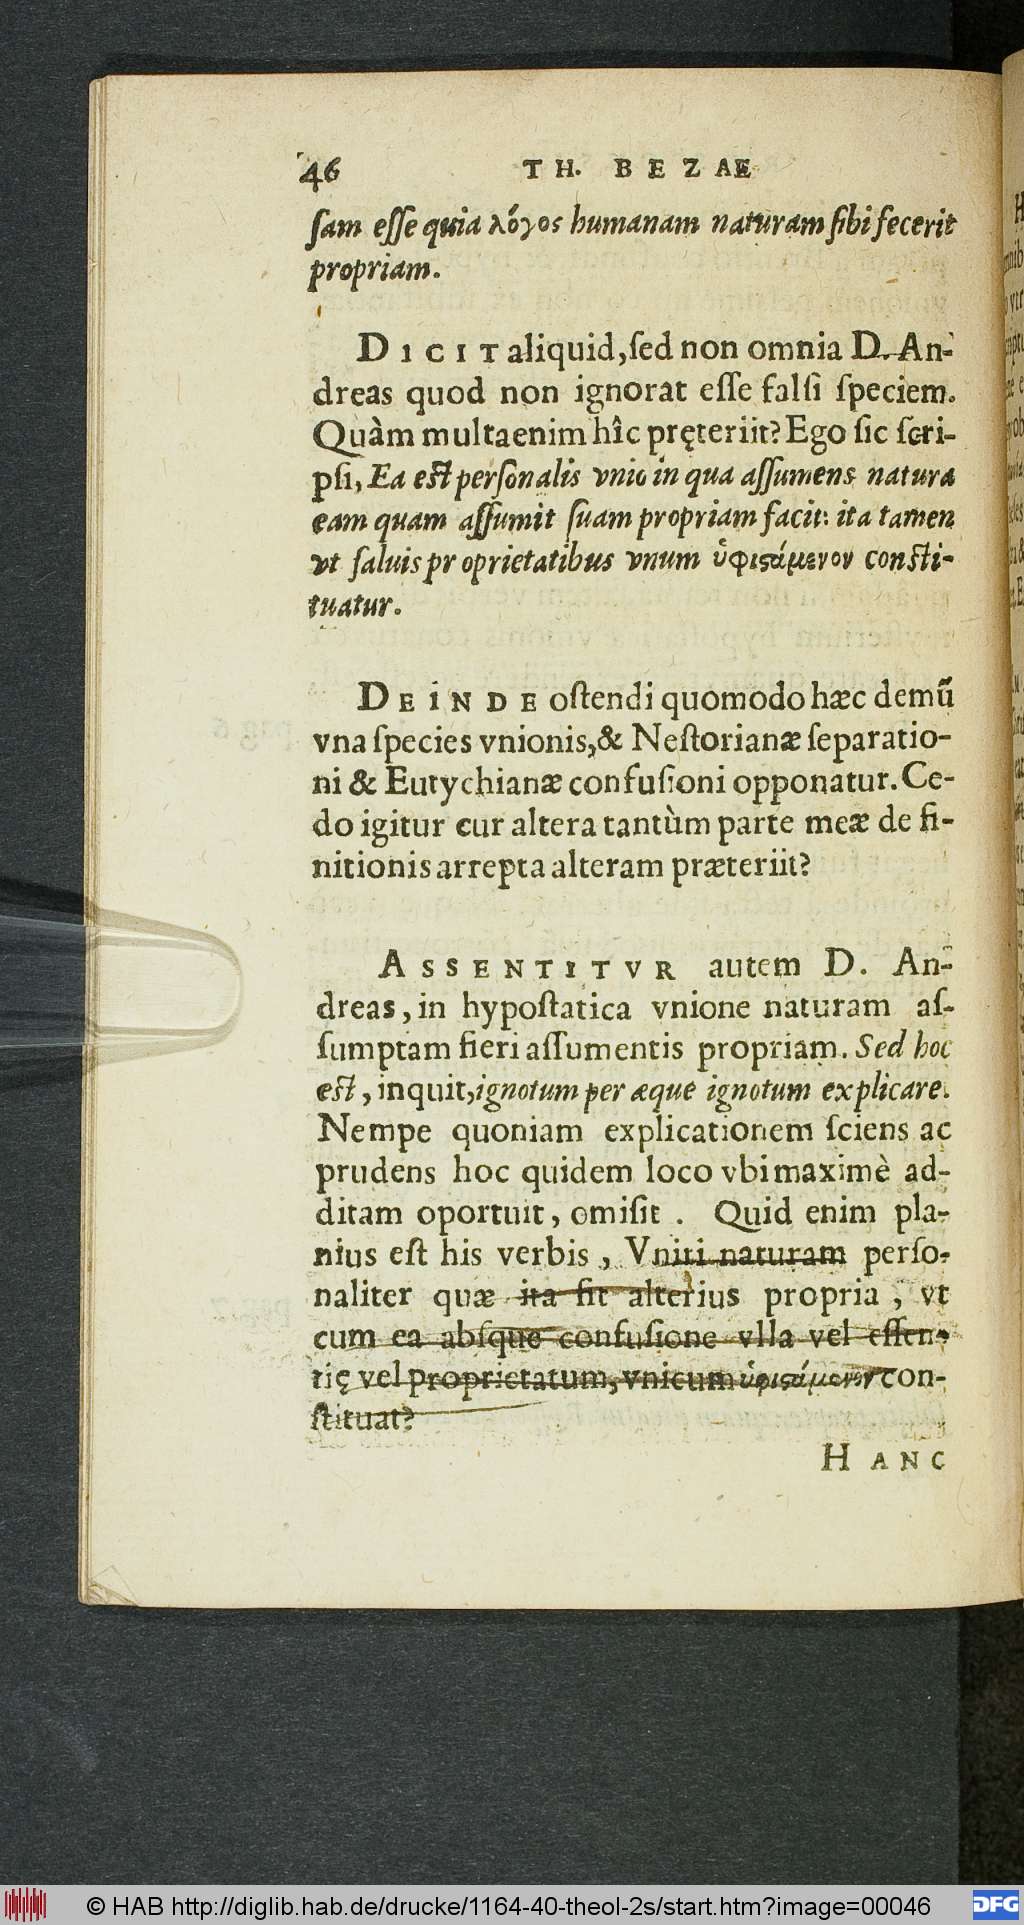 46 TH. BEZAE
ſam eſſe quia λόγος humanam naturam ſibi fecerit
propriam.
DICIT aliquid, ſed non omnia D. An-
dreas quod non ignorat eſſe falſi ſpeciem.
Quàm multa enim hîc pręteriit? Ego ſic ſcri-
pſi, Ea eſt perſonalis vnio in qua aſſumens natura
eam quam aſſumit ſuam propriam facit: ita tamen
vt ſaluis pr oprietatibus vnum ὑφιϛάμενον conſti-
tuatur.
DEINDE oſtendi quomodo hæc demũ
vna ſpecies vnionis, & Neſtorianæ ſeparatio-
ni & Eutychianæ confuſioni opponatur. Ce-
do igitur cur altera tantùm parte meæ de fi-
nitionis arrepta alteram præteriit?
ASSENTITVR autem D. An-
dreas, in hypoſtatica vnione naturam aſ-
ſumptam fieri aſſumentis propriam. Sed hoc
eſt, inquit, ignotum per æque ignotum explicare.
Nempe quoniam explicationem ſciens ac
prudens hoc quidem loco vbi maximè ad-
ditam oportuit, omiſit. Quid enim pla-
nius eſt his verbis, Vniri naturam perſo-
naliter quæ ita fit alterius propria, vt
cum ea abſque confuſione vlla vel eſſen-
tię vel proprietatum, vnicum ὑφιϛάμενον con-
ſtituat?
HANC
© HAB http://diglib.hab.de/drucke/1164-40-theol-2s/start.htm?image=00046
DFG